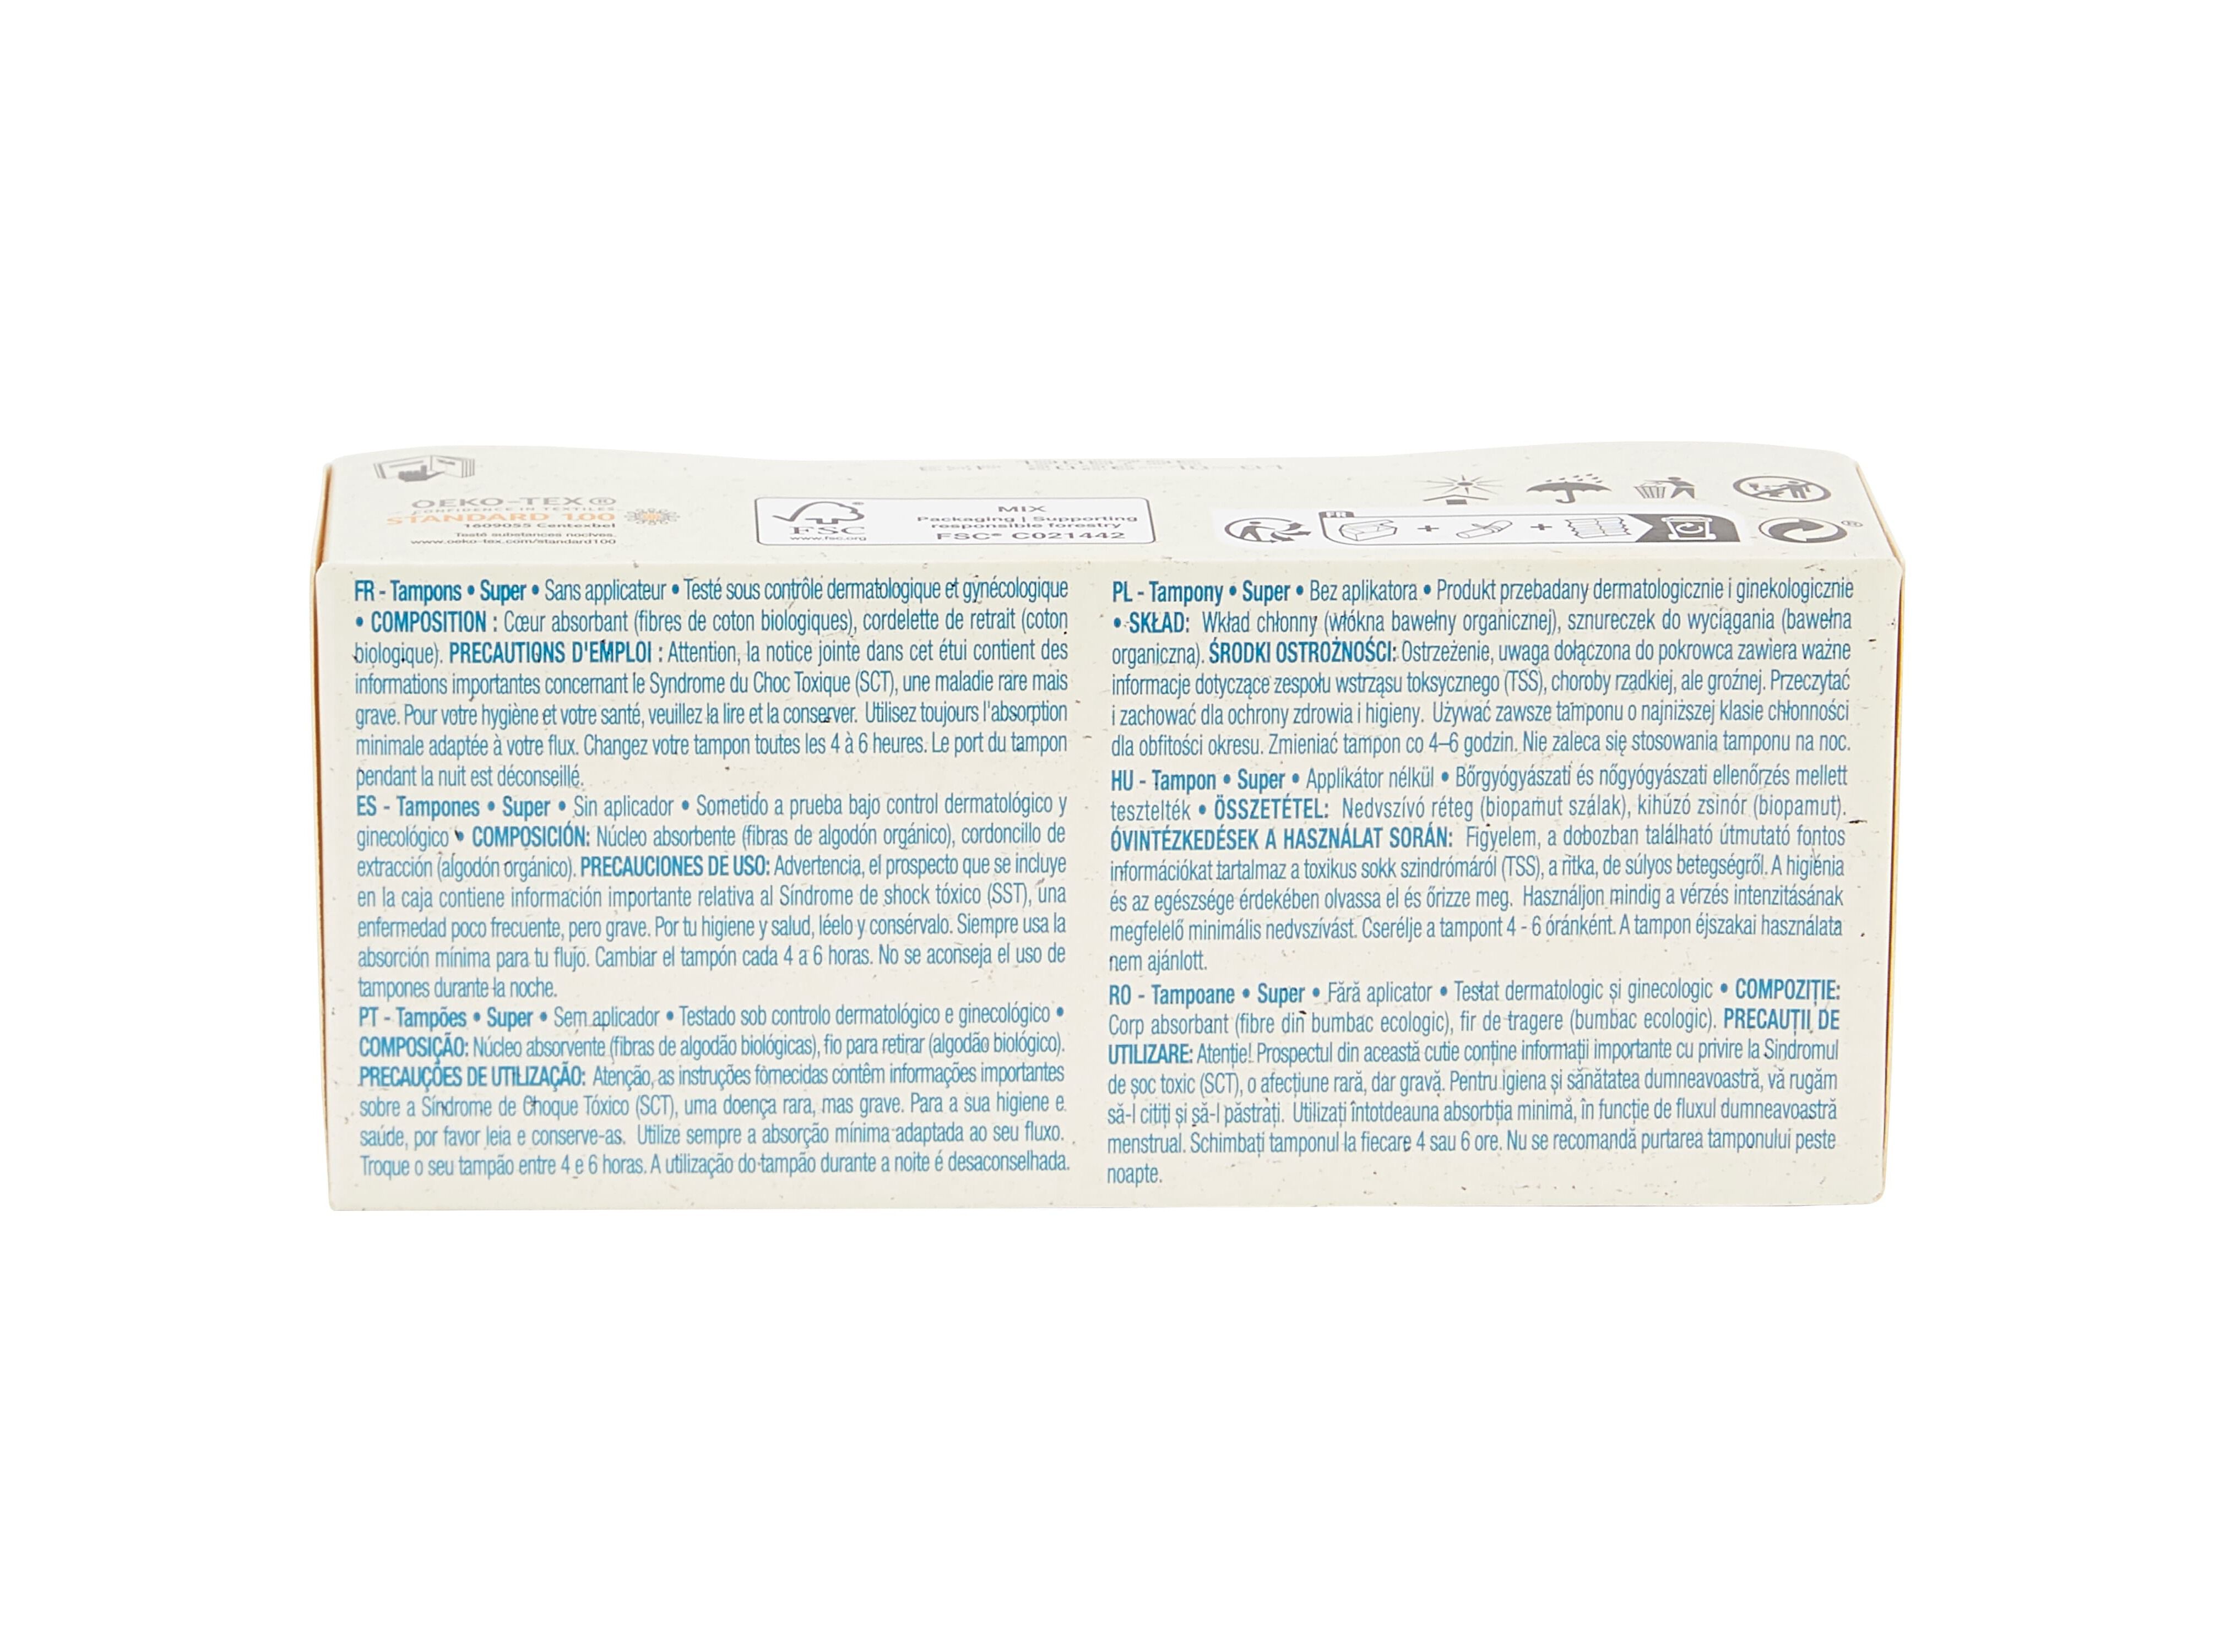 OEKO-TEX®
CONFIDENCE IN TEXTILES
STANDARD 100
1609055 Centexbel
Testé substances nocives.
www.oeko-tex.com/standard100
FSC
www.fsc.org
MIX
Packaging | Supporting
responsible forestry
FSC® C021442
FR
®
FR - Tampons • Super • Sans applicateur • Testé sous contrôle dermatologique et gynécologique
• COMPOSITION : Cœur absorbant (fibres de coton biologiques), cordelette de retrait (coton
biologique). PRECAUTIONS D'EMPLOI : Attention, la notice jointe dans cet étui contient des
informations importantes concernant le Syndrome du Choc Toxique (SCT), une maladie rare mais
grave. Pour votre hygiène et votre santé, veuillez la lire et la conserver. Utilisez toujours l'absorption
minimale adaptée à votre flux. Changez votre tampon toutes les 4 à 6 heures. Le port du tampon
pendant la nuit est déconseillé.
ES - Tampones • Super • Sin aplicador • Sometido a prueba bajo control dermatológico y
ginecológico • COMPOSICIÓN: Núcleo absorbente (fibras de algodón orgánico), cordoncillo de
extracción (algodón orgánico). PRECAUCIONES DE USO: Advertencia, el prospecto que se incluye
en la caja contiene información importante relativa al Síndrome de shock tóxico (SST), una
enfermedad poco frecuente, pero grave. Por tu higiene y salud, léelo y consérvalo. Siempre usa la
absorción mínima para tu flujo. Cambiar el tampón cada 4 a 6 horas. No se aconseja el uso de
tampones durante la noche.
PT - Tampões • Super • Sem aplicador • Testado sob controlo dermatológico e ginecológico •
COMPOSIÇÃO: Núcleo absorvente (fibras de algodão biológicas), fio para retirar (algodão biológico).
PRECAUÇÕES DE UTILIZAÇÃO: Atenção, as instruções fornecidas contêm informações importantes
sobre a Síndrome de Choque Tóxico (SCT), uma doença rara, mas grave. Para a sua higiene e
saúde, por favor leia e conserve-as. Utilize sempre a absorção mínima adaptada ao seu fluxo.
Troque o seu tampão entre 4 e 6 horas. A utilização do tampão durante a noite é desaconselhada.
PL - Tampony • Super • Bez aplikatora • Produkt przebadany dermatologicznie i ginekologicznie
• SKŁAD: Wkład chłonny (włókna bawełny organicznej), sznureczek do wyciągania (bawełna
organiczna). ŚRODKI OSTROŻNOŚCI: Ostrzeżenie, uwaga dołączona do pokrowca zawiera ważne
informacje dotyczące zespołu wstrząsu toksycznego (TSS), choroby rzadkiej, ale groźnej. Przeczytać
i zachować dla ochrony zdrowia i higieny. Używać zawsze tamponu o najniższej klasie chłonności
dla obfitości okresu. Zmieniać tampon co 4–6 godzin. Nie zaleca się stosowania tamponu na noc.
HU - Tampon • Super • Applikátor nélkül • Bőrgyógyászati és nőgyógyászati ellenőrzés mellett
tesztelték • ÖSSZETÉTEL: Nedvszívó réteg (biopamut szálak), kihúzó zsinór (biopamut).
ÓVINTÉZKEDÉSEK A HASZNÁLAT SORÁN: Figyelem, a dobozban található útmutató fontos
információkat tartalmaz a toxikus sokk szindrómáról (TSS), a ritka, de súlyos betegségről. A higiénia
és az egészsége érdekében olvassa el és őrizze meg. Használjon mindig a vérzés intenzitásának
megfelelő minimális nedvszívást. Cserélje a tampont 4 - 6 óránként. A tampon éjszakai használata
nem ajánlott.
RO - Tampoane • Super • Fără aplicator • Testat dermatologic și ginecologic • COMPOZIȚIE:
Corp absorbant (fibre din bumbac ecologic), fir de tragere (bumbac ecologic). PRECAUȚII DE
UTILIZARE: Atenție! Prospectul din această cutie conține informații importante cu privire la Sindromul
de șoc toxic (SCT), o afecțiune rară, dar gravă. Pentru igiena și sănătatea dumneavoastră, vă rugăm
să-l citiți și să-l păstrați. Utilizați întotdeauna absorbția minimă, în funcție de fluxul dumneavoastră
menstrual. Schimbați tamponul la fiecare 4 sau 6 ore. Nu se recomandă purtarea tamponului peste
noapte.